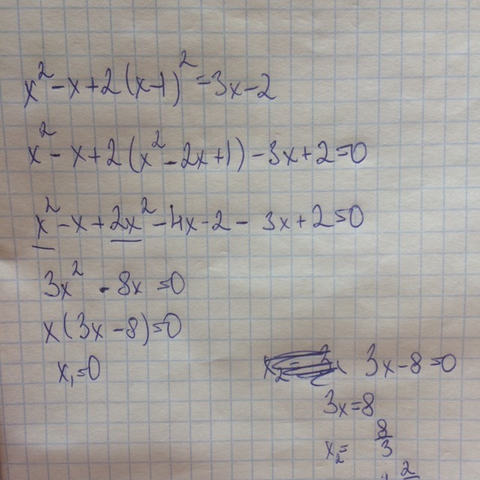 x² - x + 2(x-1)² = 3x - 2
x² - x + 2(x² - 2x + 1) - 3x + 2 = 0
x² - x + 2x² - 4x - 2 - 3x + 2 = 0
3x² - 8x = 0
x(3x - 8) = 0
x₁ = 0
3x - 8 = 0
3x = 8
x₂ = 8/3